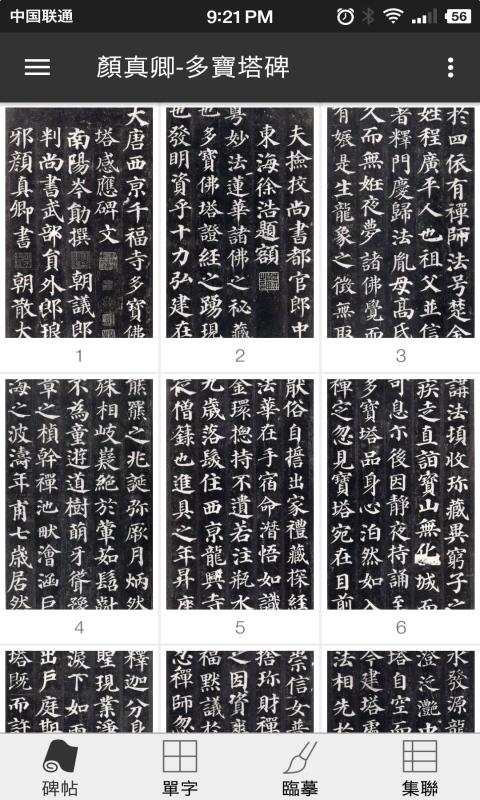 中国联通
9:21 PM
56
顏真卿-多寶塔碑
大唐西京千福寺多寶佛
塔感應碑文
南陽岑勛撰 朝議郎
判尚書武部員外郎琅
邪顏真卿書 朝散大
1
夫撿挍尚書都官郎中
東海徐浩題額
粵妙法蓮華諸佛之秘藏
也多寶佛塔證經之踴現
也發明資乎十力弘建在
2
於四依有禪師法号楚金
姓程廣平人也祖父並信
著釋門慶歸法胤母高氏
久而無姙夜夢諸佛覺而
有娠是生龍象之徵無取
3
熊羆之兆誕弥厥月炳然
殊相岐嶷絕於葷茹髫齔
不為童遊道樹萌牙聳豫
章之楨幹禪池畎澮涵巨
海之波濤年甫七歲居然
4
猒俗自誓出家禮藏探經
法華在手宿命潛悟如識
金環揔持不遺若注瓶水
九歲落髮住西京龍興寺
從僧籙也進具之年昇座
5
講法頓收珍藏異窮子之
疾走直詣寶山無化城而
可息尒後因靜夜持誦至
多寶塔品身心泊然如入
禪之忽見寶塔宛在目前
6
釋迦分身
聖現業淨
淚下如雨
出戶庭期
塔既而許
崇信女普
捨珍財禪
之因資爽
福黙議於
忍禪師忽
水發源龍
澄泛灩中
塔自空而
今建塔處
法相先於
碑帖
單字
臨摹
集聯